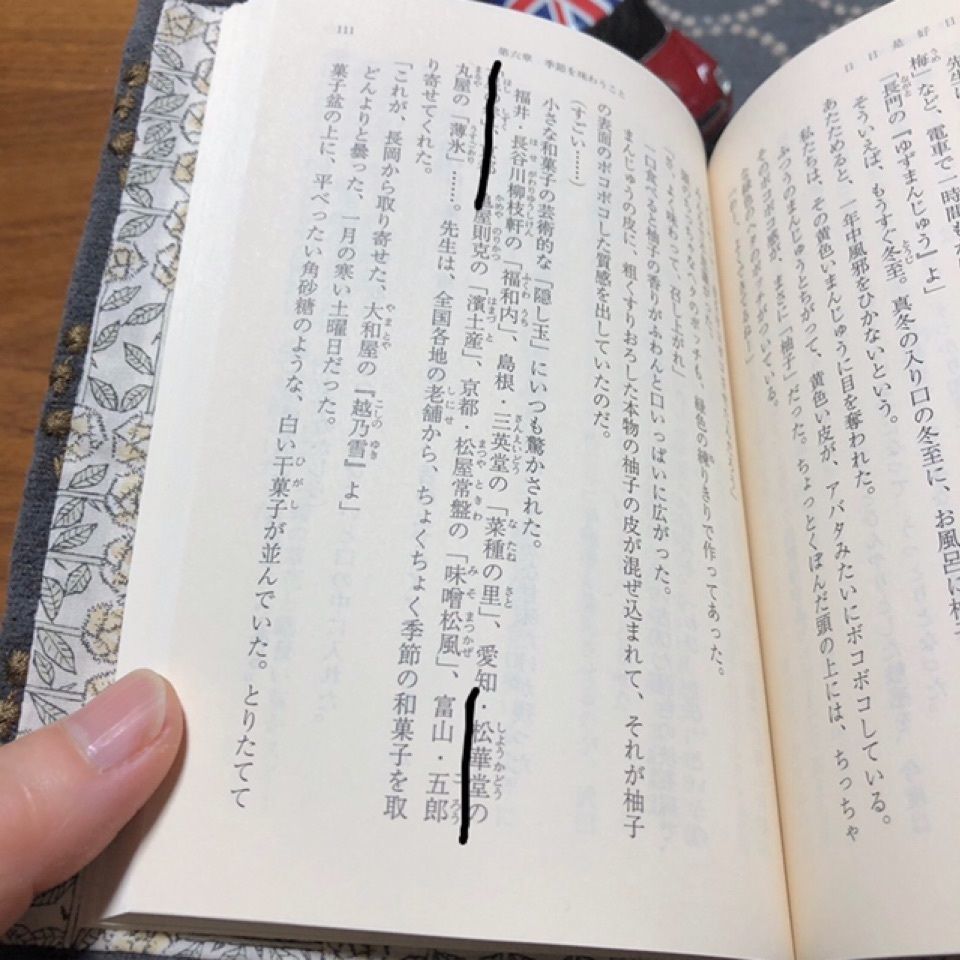 日日是好日
梅」など、電車で一時間も
「長門の『ゆずまんじゅう』よ」
そういえば、もうすぐ冬至。真冬の入り口の冬至に、お風呂に柚
あたためると、一年中風邪をひかないという。
私たちは、その黄色いまんじゅうに目を奪われた。
ふつうのまんじゅうとちがって、黄色い皮が、アバタみたいにボコボコしている。
のボコボコ感が、まさに「柚子」だった。ちょっとくぼんだ頭の上には、ちっちゃ
緑色のヘタのポッチがついている。
111
第六章 季節を味わうこと
ヘタのポッチも、緑色の練りきりで作ってあった。
よく味わって、召し上がれ」
一口食べると柚子の香りがふわんと口いっぱいに広がった。
まんじゅうの皮に、粗くすりおろした本物の柚子の皮が混ぜ込まれて、それが柚子
の表面のボコボコした質感を出していたのだ。
(すごい……)
小さな和菓子の芸術的な「隠し玉」にいつも驚かされた。
福井・長谷川柳枝軒の「福和内」、島根・三英堂の「菜種の里」、愛知・松華堂の
屋則克の「濱土産」、京都・松屋常盤の「味噌松風」、富山・五郎
丸屋の「薄氷」……。先生は、全国各地の老舗から、ちょくちょく季節の和菓子を取
り寄せてくれた。
「これが、長岡から取り寄せた、大和屋の『越乃雪』よ」
どんよりと曇った、一月の寒い土曜日だった。
菓子盆の上に、平べったい角砂糖のような、白い干菓子が並んでいた。とりたてて